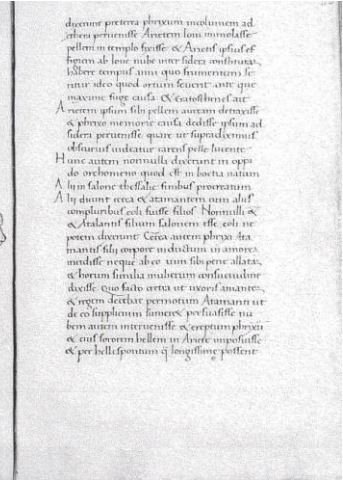 dixerunt preterea phrixum incolumem ad
ethera peruenisse Arietem Ioui inmolasse
pellem in templo fixisse & Arietis ipsius ef
figiem ab Ioue nube inter sidera constitutam
habere tempus anni quo frumentum se
ritur ideo quod ortum seuerit ante que
maxime fuge causa & eratosthenes ait
Arietem ipsum sibi pellem auream detraxisse
& phrixo memorie causa dedisse ipsum ad
sidera peruenisse quare ut supradiximus
obscurius uideatur carens pelle lucente
Hunc autem nonnulli dixerunt in oppi
do orchomeno quod est in boetia natum
Alii in salone thessalie finibus procreatum
Alii dicunt cerca & atamantem cum aliis
compluribus eoli fuisse filios Nonnulli &
& Atalantis filium salonem esse eoli ne
potem dixerunt Cerea autem phrixi Ata
mantis filii corpore inductum in amore
incidisse neque ab eo cum sibi pene allatas
& horum similia mulierum consuetudine
dixisse Quo facto cretea ut uxoris amantem
& regem decebat permotum Atamanti ut
de eo supplicium sumeret persuasisse nu
bem autem interuenisse & ereptum phrixum
& eius sororem hellem in Ariete imposuisse
& per hellespontum q longissime possent